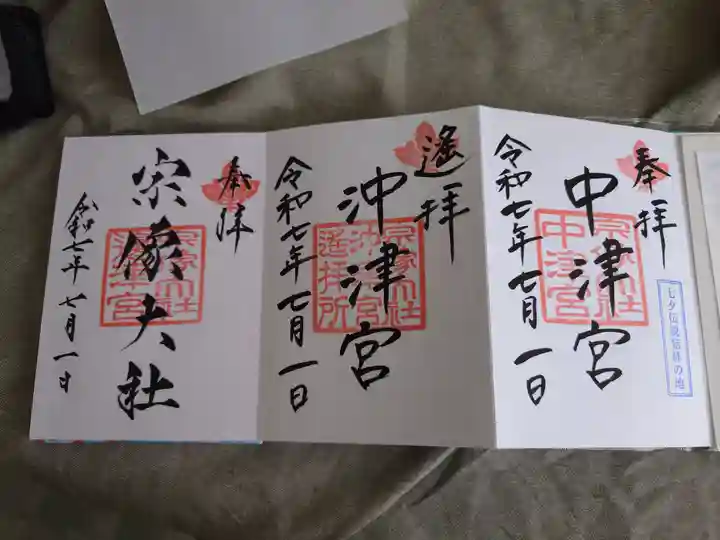 奉拝
中津宮
令和七年七月一日
七夕伝説発祥の地
宗像大社
中津宮
遙拝
沖津宮
令和七年七月一日
宗像大社
沖津宮
遙拝所
奉拝
宗像大社
令和七年七月一日
宗像大社
辺津宮